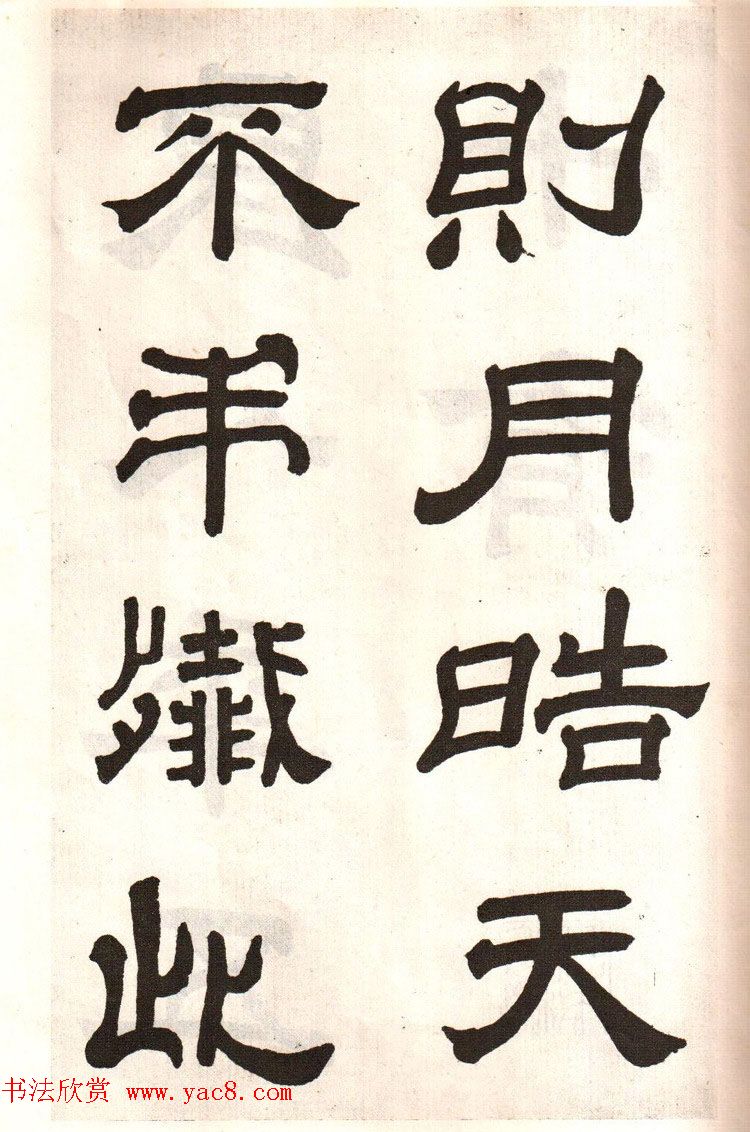 則月皓天
不弔殲此
书法欣赏 www.yac8.com